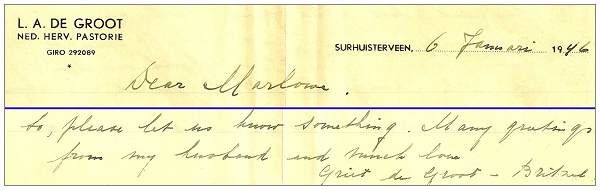 L. A. DE GROOT
NED. HERV. PASTORIE
GIRO 292089
SURHUISTERVEEN, 6 Januari 1946
Dear Marlowe.
to, please let us know something. Many greetings
from my husband and much love
Griet de Groot - Britzel